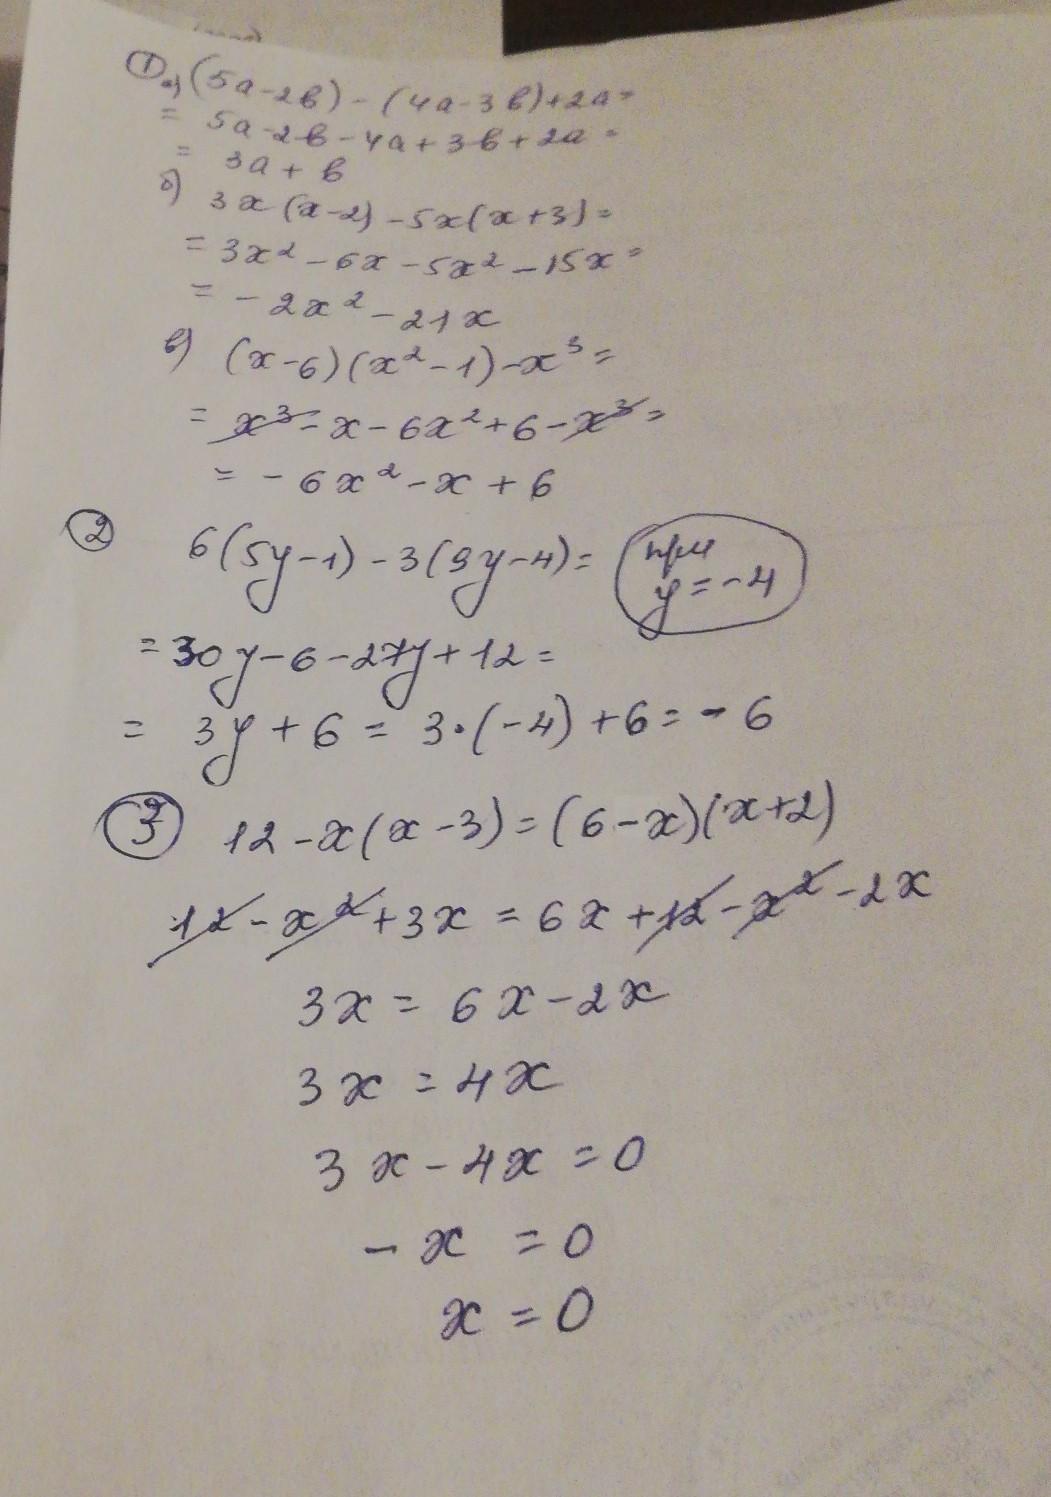 ① а) (5a-2b) - (4a-3b)+2a=
= 5a-2b-4a+3b+2a=
= 3a+b
б) 3x(x-2)-5x(x+3)=
= 3x²-6x-5x²-15x=
= -2x²-21x
в) (x-6)(x²-1)-x³=
= x³-x-6x²+6-x³=
= -6x²-x+6
② 6(5y-1)-3(9y-4)= при
y=-4
=30y-6-27y+12=
= 3y+6 = 3·(-4)+6=-6
③ 12-x(x-3)=(6-x)(x+2)
12-x²+3x = 6x+12-x²-2x
3x = 6x-2x
3x = 4x
3x-4x=0
-x = 0
x = 0